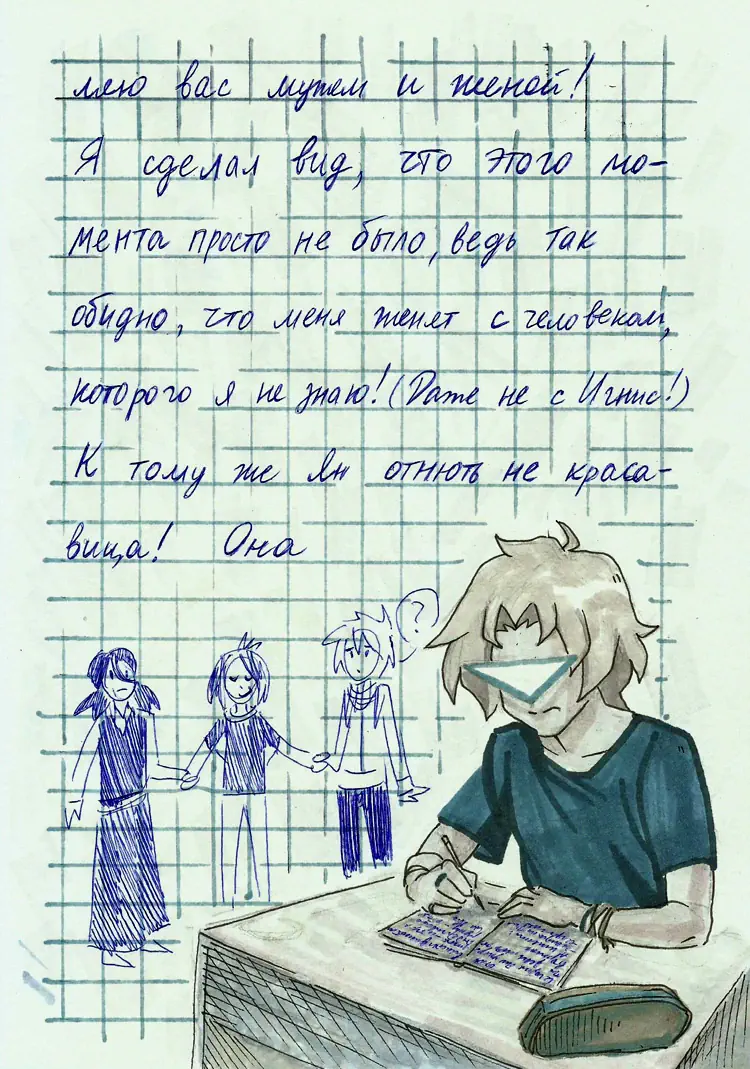 ляю вас мужем и женой!
Я сделал вид, что этого мо-
мента просто не было, ведь так
обидно, что меня женят с человеком,
которого я не знаю! (Даже не с Игнис!)
К тому же Ян отнють не краса-
вица! Она
?